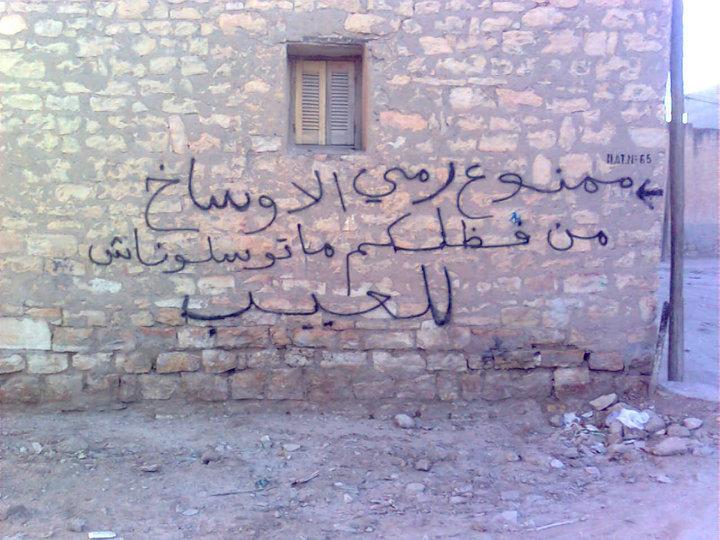 BAT.Nº 65
ممنوع رمي الاوساخ
من فظلكم ماتوسلوناش
للعيب